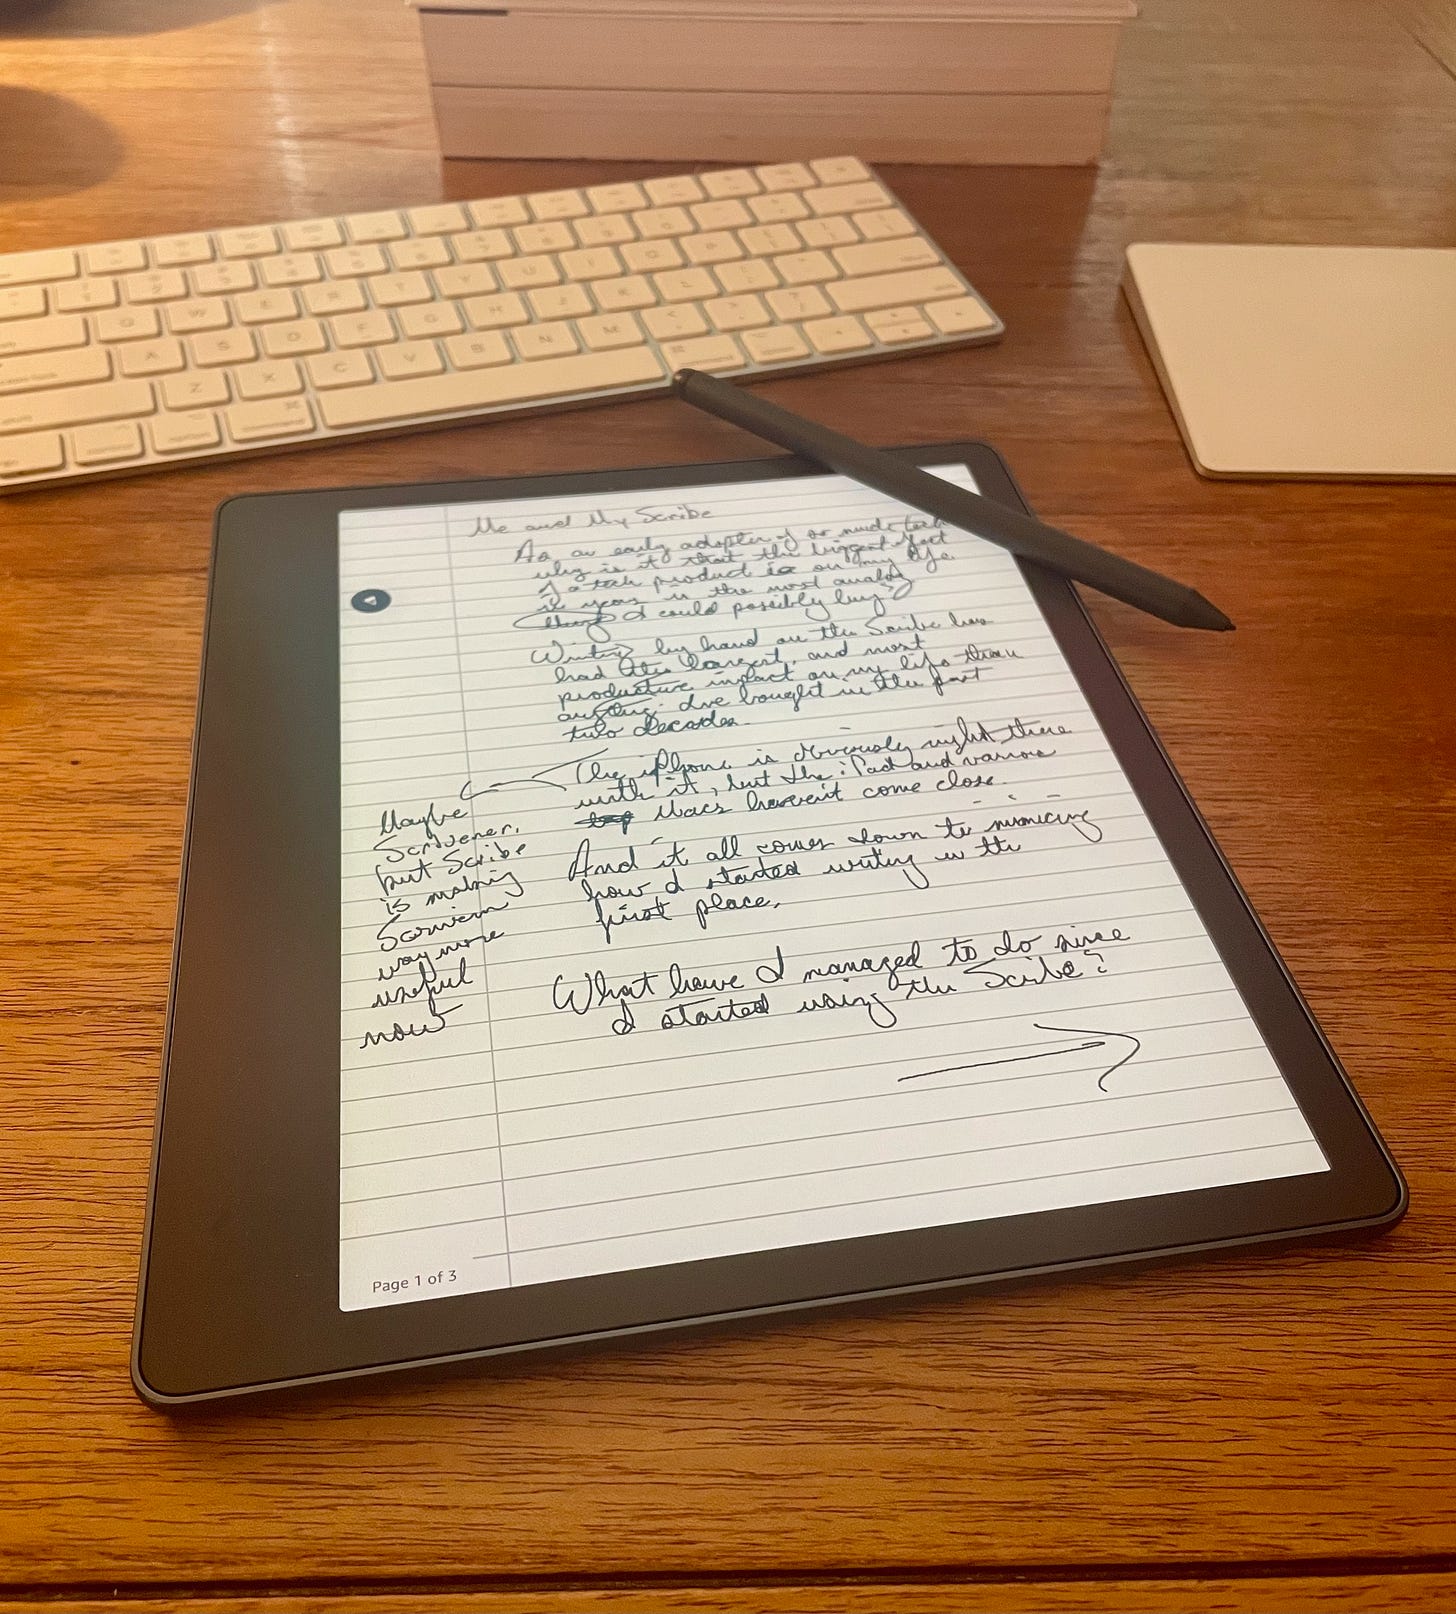 Me and My Scribe
As an early adopter of so much tech
why is it that the biggest effect
of a tech product is on my life
in years is the most analog
thing I could possibly buy?
Writing by hand on the Scribe has
had the largest, and most
productive impact on my life than
anything I've bought in the past
two decades.
The iPhone is obviously right there
with it, but the iPad and various
Macs haven't come close.
And it all comes down to mimicing
how I started writing in the
first place.
Maybe
Scrivener,
but Scribe
is making
Scrivener
way more
useful
now
What have I managed to do since
I started using the Scribe?
Page 1 of 3